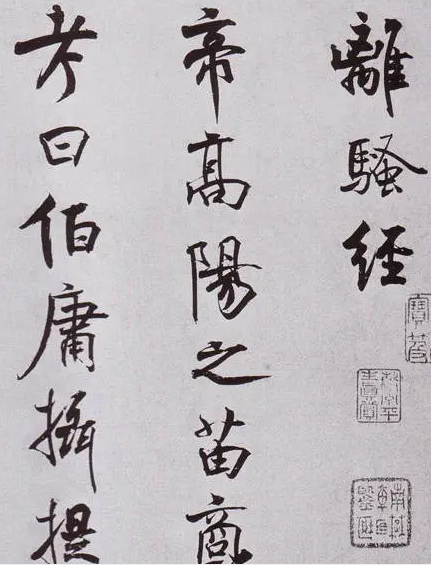 離騷經
帝高陽之苗裔
考曰伯庸攝提